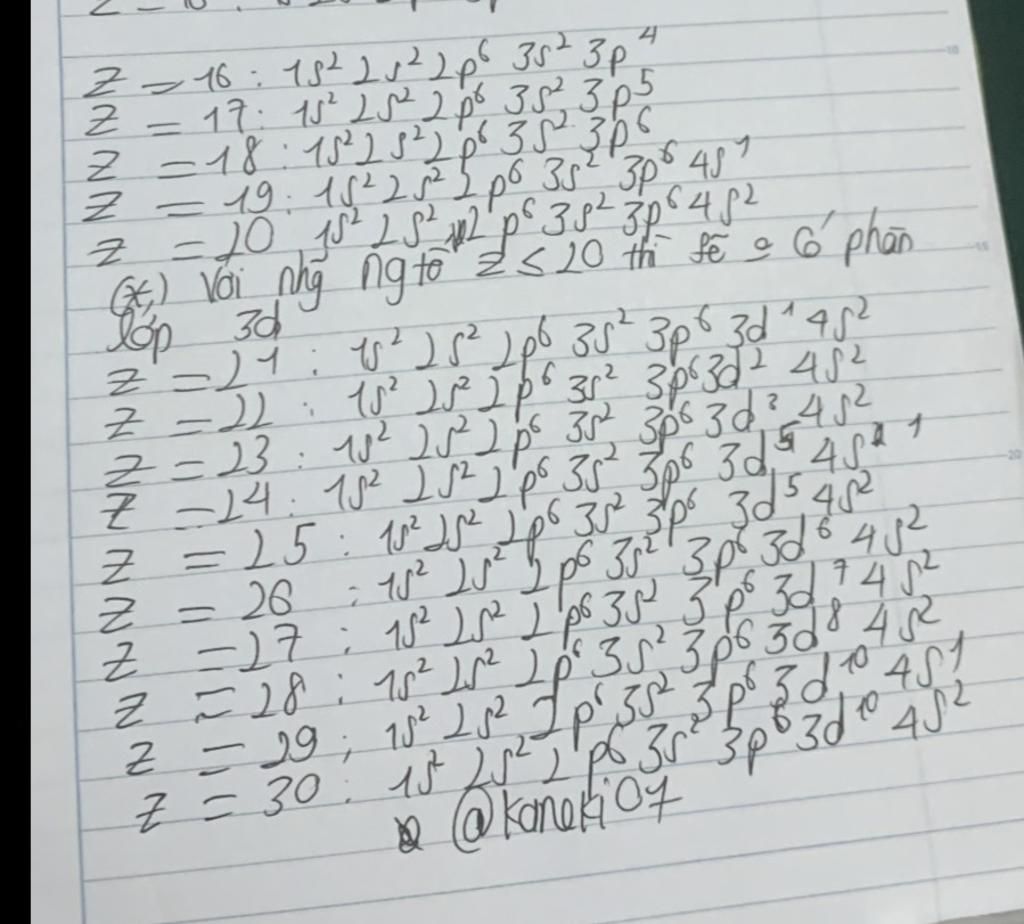 Z = 16 : 1s² 2s² 2p⁶ 3s² 3p⁴
Z = 17 : 1s² 2s² 2p⁶ 3s² 3p⁵
Z = 18 : 1s² 2s² 2p⁶ 3s² 3p⁶
Z = 19 : 1s² 2s² 2p⁶ 3s² 3p⁶ 4s¹
Z = 20 1s² 2s² 2p⁶ 3s² 3p⁶ 4s²
(*) Với nhg ngtố Z ≤ 20 thì sẽ ko có phân
lớp 3d
Z = 21 : 1s² 2s² 2p⁶ 3s² 3p⁶ 3d¹ 4s²
Z = 22 : 1s² 2s² 2p⁶ 3s² 3p⁶ 3d² 4s²
Z = 23 : 1s² 2s² 2p⁶ 3s² 3p⁶ 3d³ 4s²
Z = 24 : 1s² 2s² 2p⁶ 3s² 3p⁶ 3d⁵ 4s¹
Z = 25 : 1s² 2s² 2p⁶ 3s² 3p⁶ 3d⁵ 4s²
Z = 26 : 1s² 2s² 2p⁶ 3s² 3p⁶ 3d⁶ 4s²
Z = 27 : 1s² 2s² 2p⁶ 3s² 3p⁶ 3d⁷ 4s²
Z = 28 : 1s² 2s² 2p⁶ 3s² 3p⁶ 3d⁸ 4s²
Z = 29 : 1s² 2s² 2p⁶ 3s² 3p⁶ 3d¹⁰ 4s¹
Z = 30 : 1s² 2s² 2p⁶ 3s² 3p⁶ 3d¹⁰ 4s²
@kaneki07